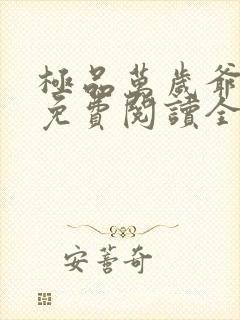 極品萬歲爺
免費閱讀全
安薺奇